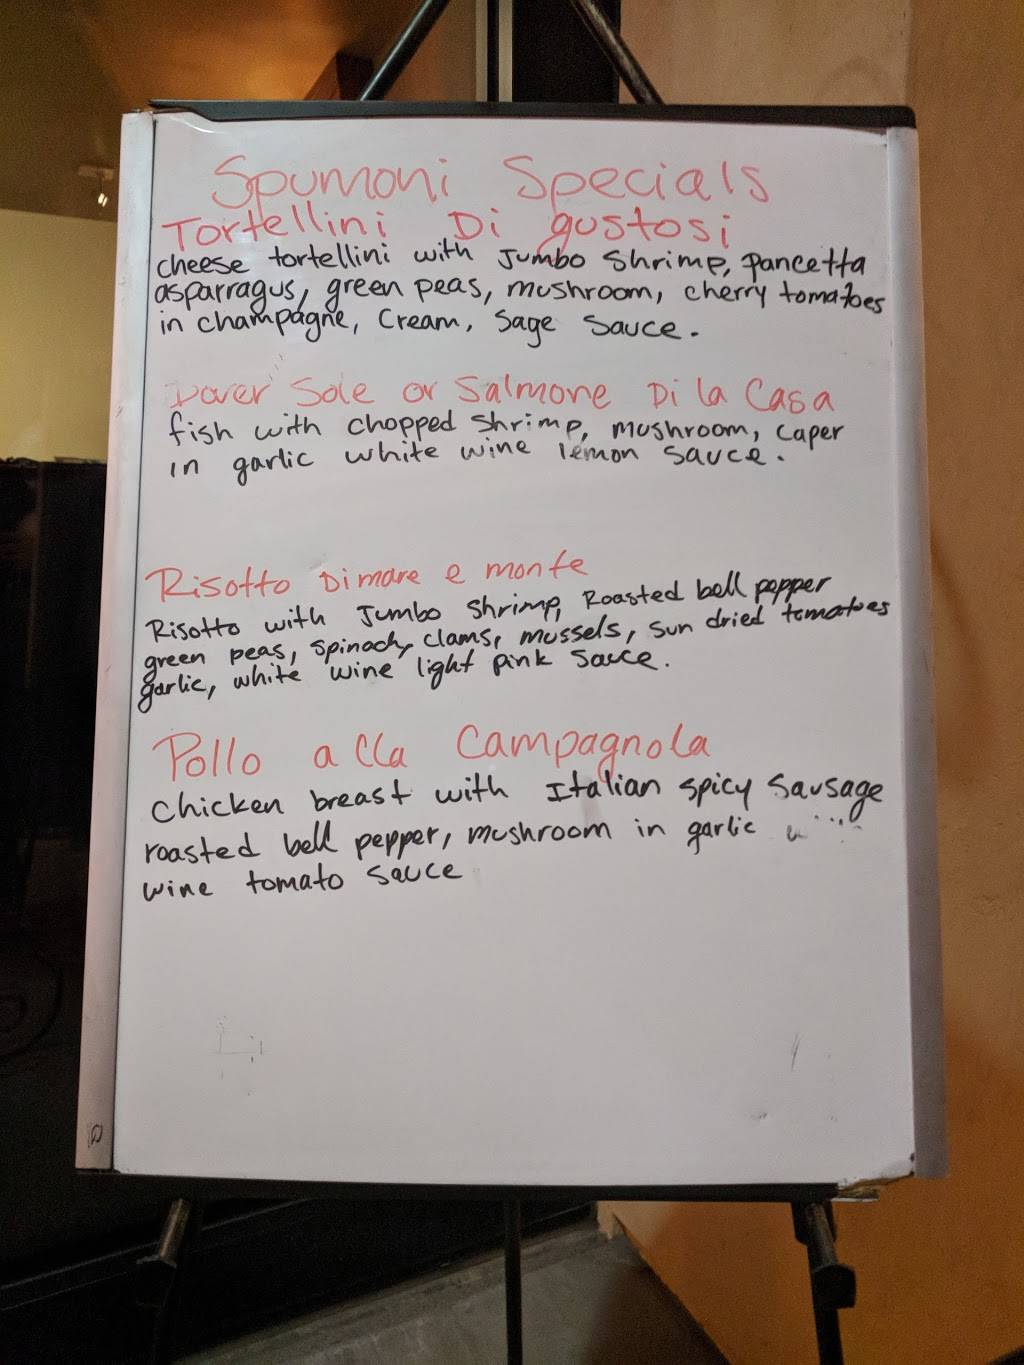 Spumoni Specials
Tortellini Di gustosi
cheese tortellini with Jumbo Shrimp, pancetta
asparragus, green peas, mushroom, cherry tomatoes
in champagne, Cream, Sage Sauce.
Dover Sole or Salmone Di la Casa
fish with chopped shrimp, mushroom, caper
in garlic white wine lemon sauce.
Risotto Dimare e monte
Risotto with Jumbo Shrimp, Roasted bell pepper
green peas, spinach, clams, mussels, sun dried tomatoes
garlic, white wine light pink sauce.
Pollo alla Campagnola
Chicken breast with Italian spicy Sausage
roasted bell pepper, mushroom in garlic
wine tomato sauce